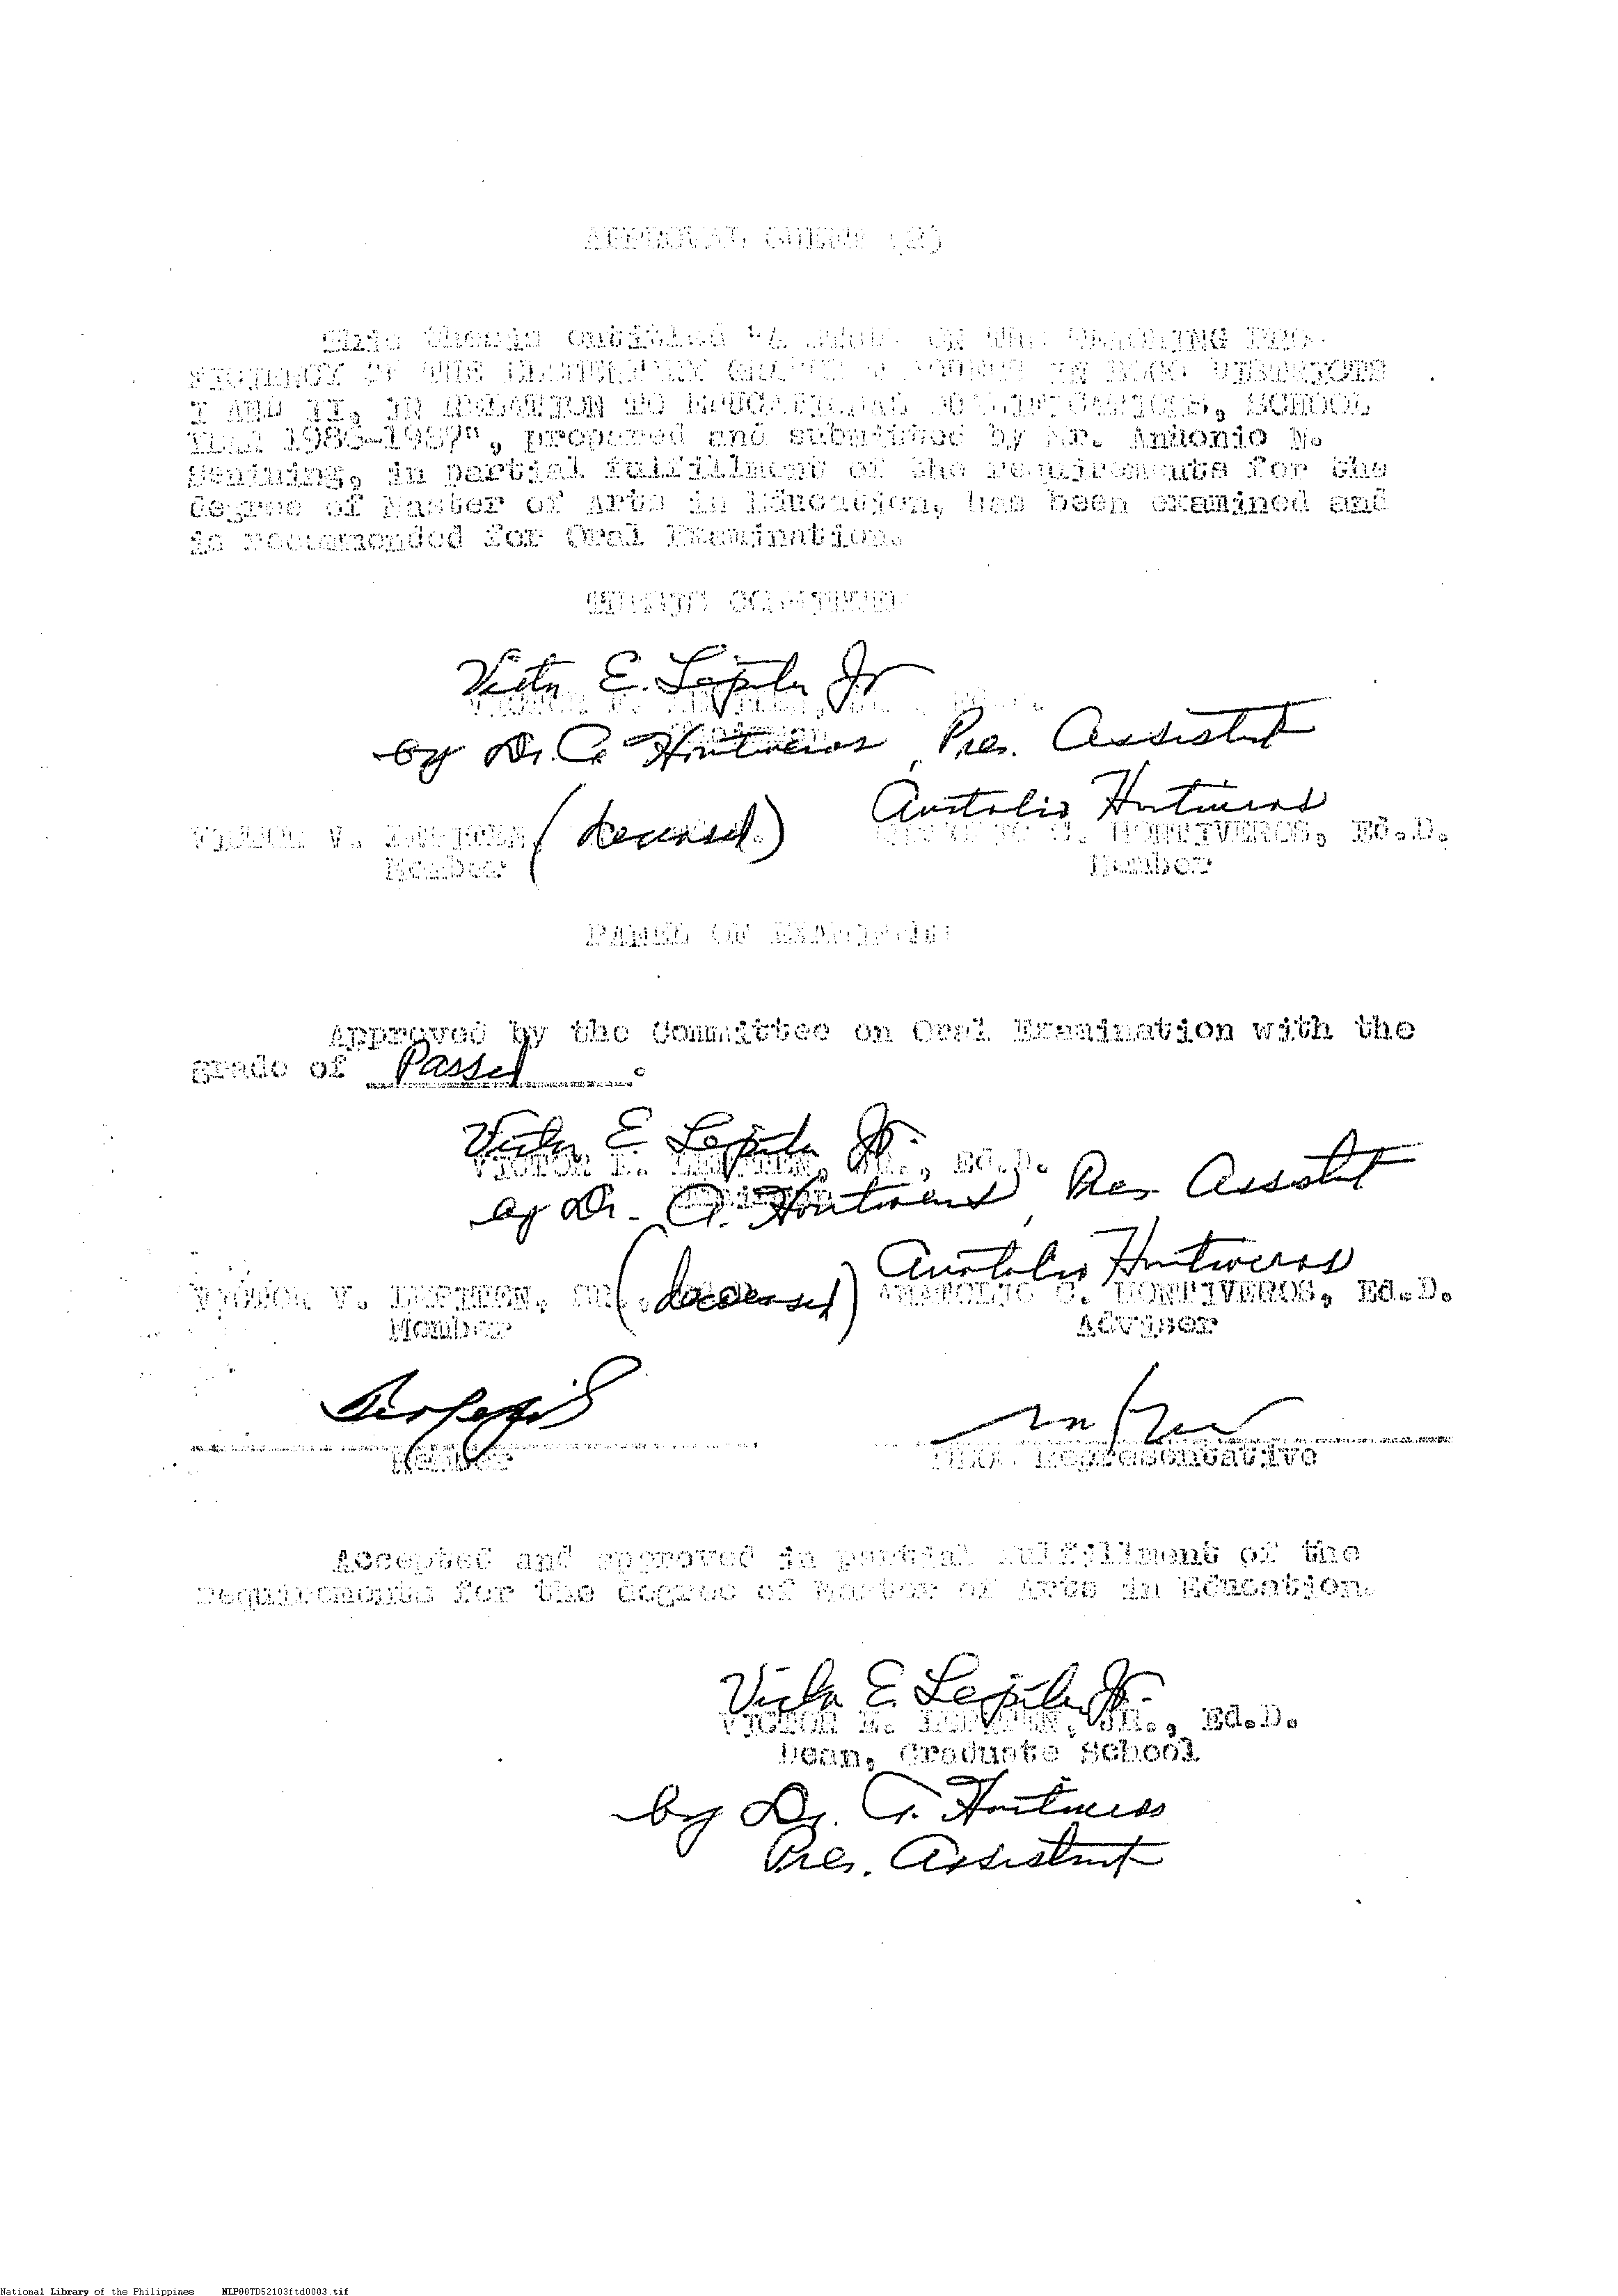 APPROVAL SHEET (2)
This thesis entitled "A STUDY ON THE TEACHING PRO-
FICIENCY OF THE ELEMENTARY GRADE IN DISTRICTS
I AND II, IN RELATION TO EDUCATIONAL QUALIFICATIONS, SCHOOL
YEAR 1986-1987", prepared and submitted by Mr. Antonio N.
in partial fulfillment of the requirements for the
degree of Master of Arts in Education, has been examined and
is recommended for Oral Examination.
THESIS COMMITTEE
Victor E. Jr
VICTOR E. JR., Ed.D.
Chairman
by Dr. A. Hontiveros, Pres. Assistant
Anatolio Hontiveros
VICTOR V. (deceased) ANATOLIO C. HONTIVEROS, Ed.D.
Member Member
PANEL OF EXAMINERS
Approved by the Committee on Oral Examination with the
grade of Passed.
Victor E Jr.
VICTOR E. JR., Ed.D.
Chairman
by Dr. A. Hontiveros, Pres Assistant
Anatolio Hontiveros
VICTOR V. SR., (deceased) ANATOLIO C. HONTIVEROS, Ed.D.
Member Adviser
Member Representative
Accepted and approved in partial fulfillment of the
requirements for the degree of Master of Arts in Education.
Victor E. Jr.
VICTOR E. JR., Ed.D.
Dean, Graduate School
by Dr. A. Hontiveros
Pres. Assistant
National Library of the Philippines NLP00TD52103ftd0003.tif